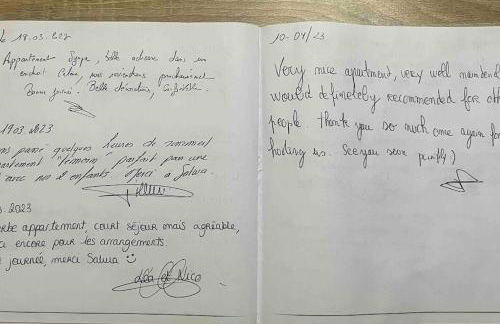 le 18.03.202
Appartement Sympa, belle adresse dans un
endroit calme, nous reviendrons prochainement
Bonne journée. Belle décoration, confortable.
19.03.2023
ons passé quelques heures de
partement "témoin" parfait pour une
avec nos 2 enfants Merci à Salwa.
. 2023
erbe appartement, court séjour mais agréable,
ci encore pour les arrangements.
e journée, merci Salwa
et Nico
10-04/23
Very nice apartment, very well maintend
would definetely recommended for oth
people. thank you so much one again for
hosting us. See you soon :)